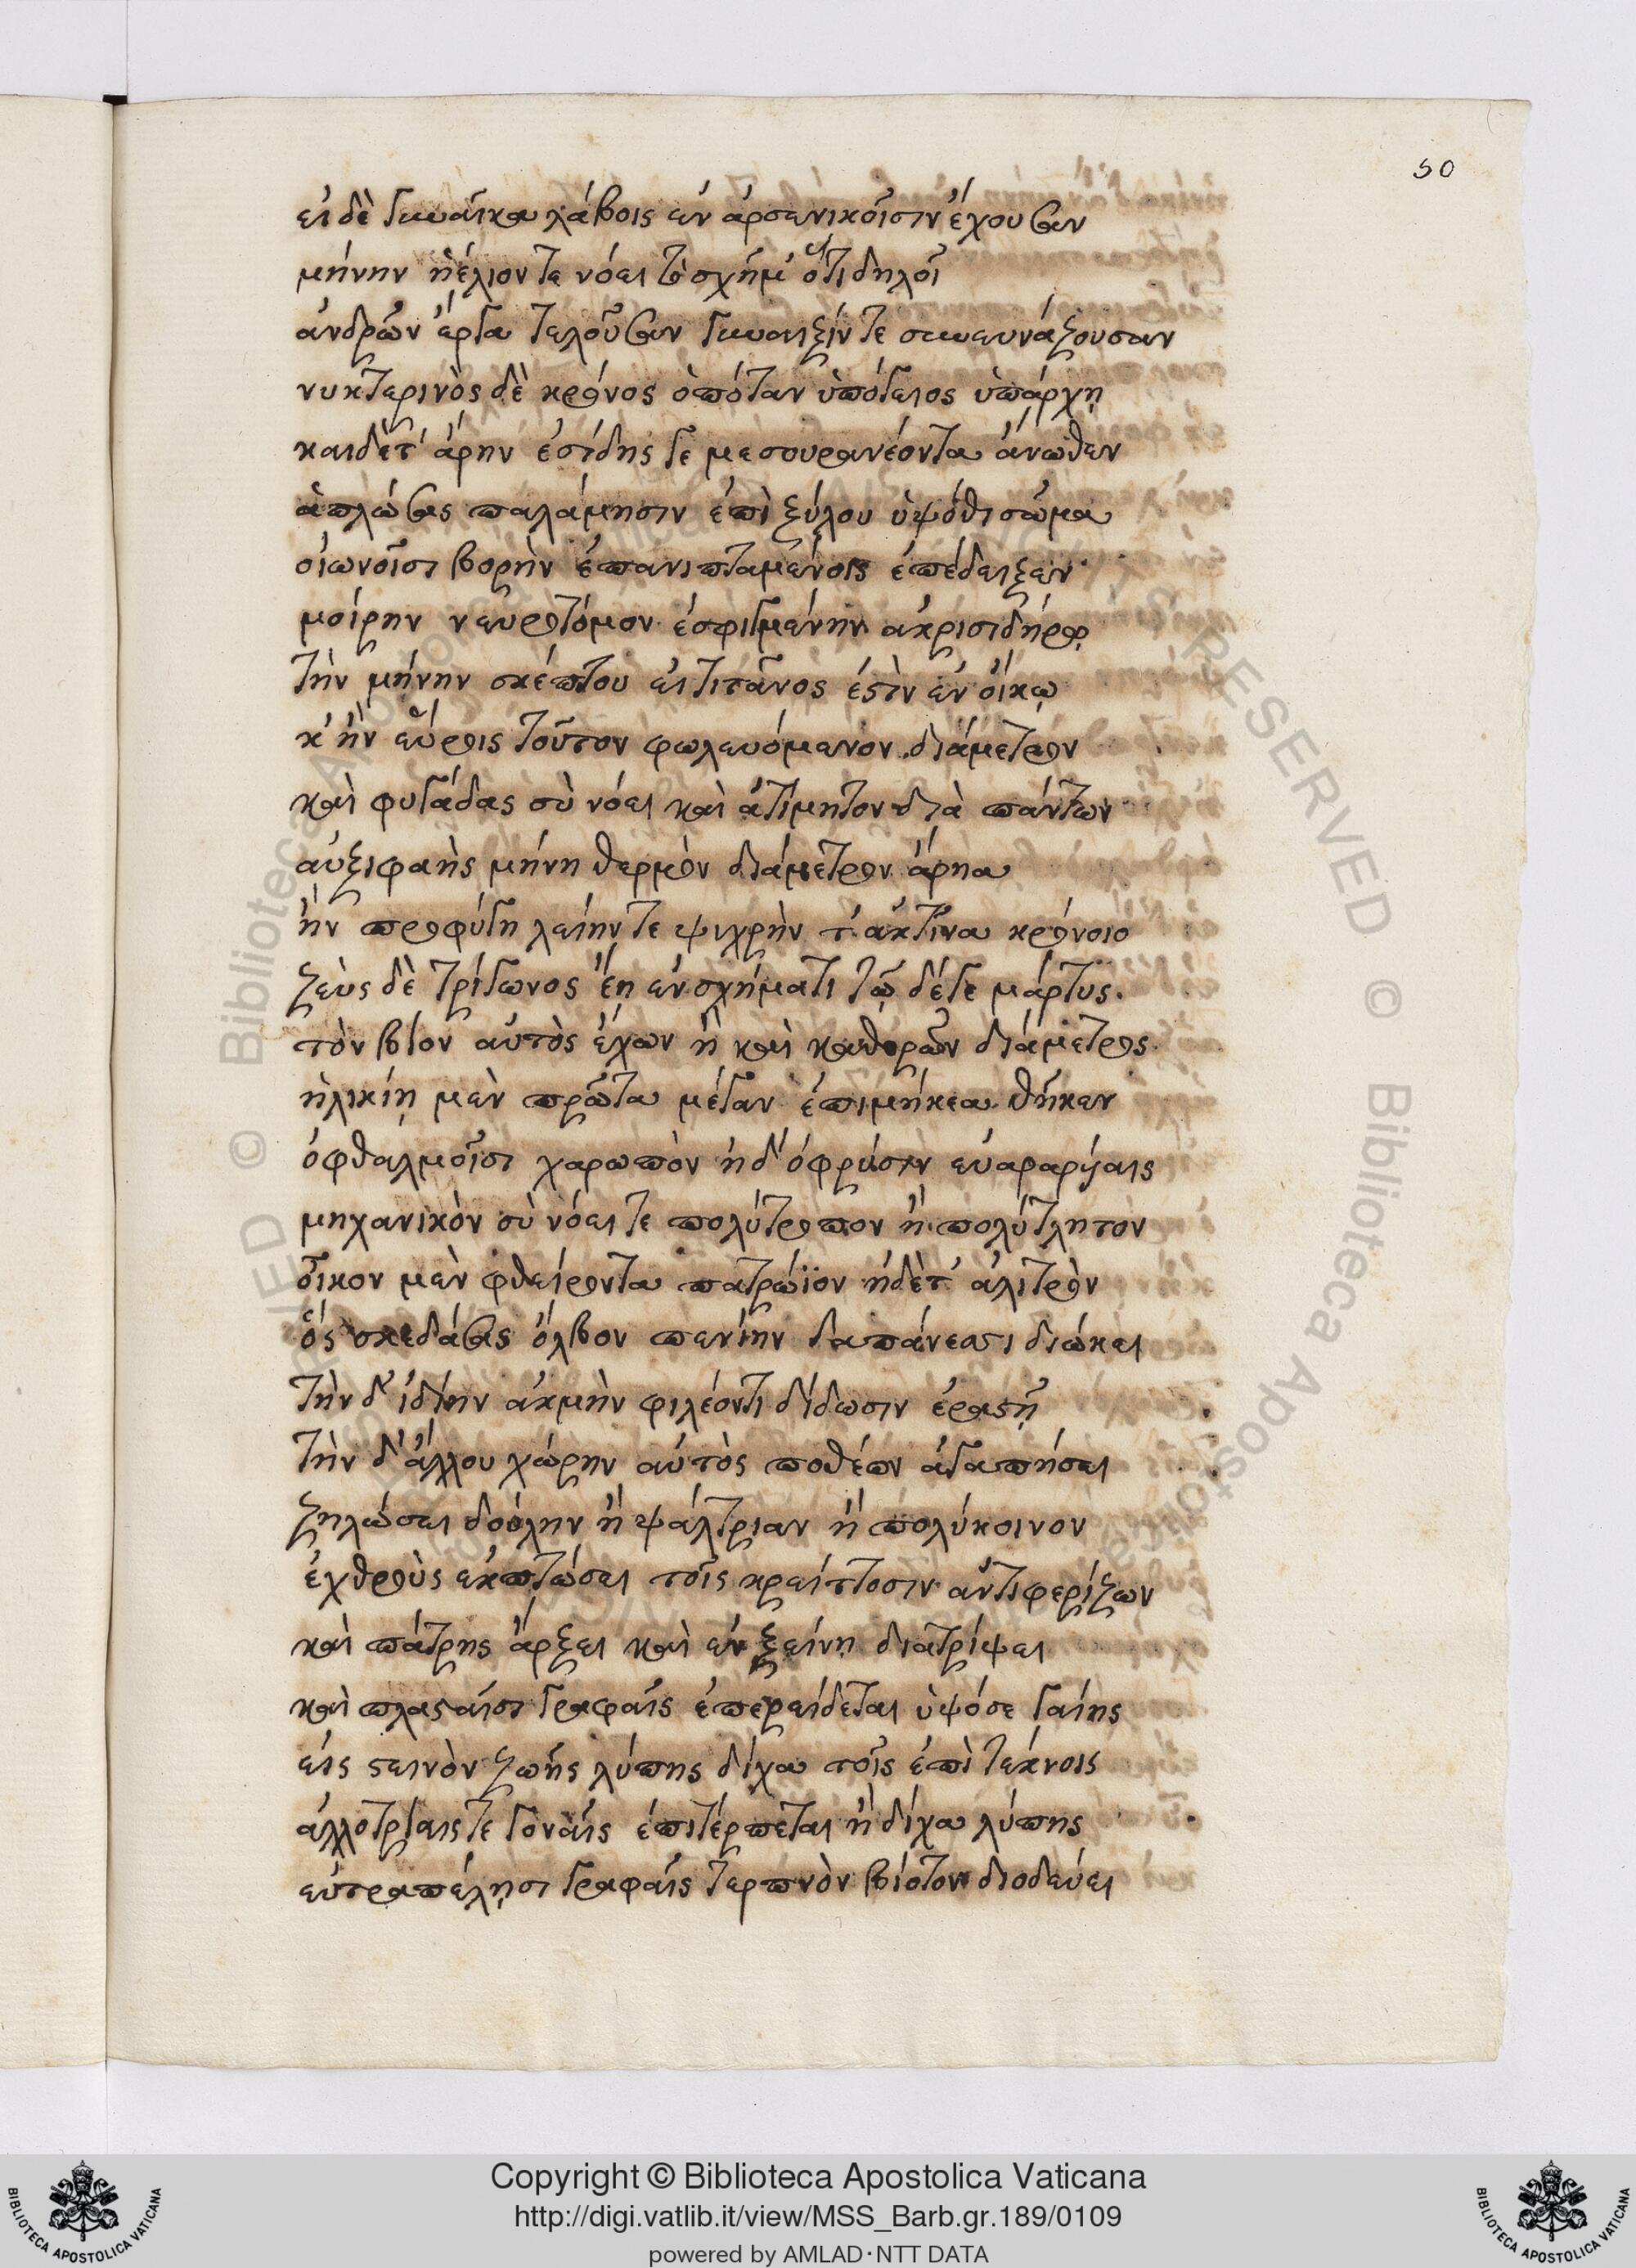 50
εἰ δὲ γυναῖκα λάβοις ἐν ἀρσενικοῖσιν ἔχουσαν
μήνην ἠέλιόν τε νόει τὸ σχῆμ' ὅτι δηλοῖ
ἀνδρῶν ἔργα τελοῦσαν γυναιξίν τε συνευνάζουσαν
νυκτερινὸς δὲ κρόνος ὁπόταν ὑπόγειος ὑπάρχῃ
καιδέτ' ἄρην ἐσίδης γε μεσουρανέοντα ἄνωθεν
ἁπλώσας παλάμησιν ἐπὶ ξύλου ὑψόθι σῶμα
οἰωνοῖσι βορὴν ἐπανιπταμένοις ἐπέδειξεν
μοίρην νευροτόμον ἐσφιγμένην ἀκρισιδήρῳ
τὴν μήνην σκέπτου εἰ τιτᾶνος ἐστὶν ἐν οἴκῳ
κ' ἢν εὕροις τοῦτον φωλευόμενον διάμετρον
καὶ φυγάδας σὺ νόει καὶ ἀτίμητον διὰ πάντων
αὐξιφαὴς μήνη θερμὸν διάμετρον ἄρηα
ἢν προφύγη λείην τε ψυχρὴν τ' ἀκτῖνα κρόνοιο
ζεὺς δὲ τρίγωνος ἔῃ ἐν σχήματι τῷ δέ γε μάρτυς.
τὸν βίον αὐτὸς ἔχων ἢ καὶ καθορῶν διάμετρος
ἡλικίῃ μὲν πρῶτα μέγαν ἐπιμήκεα θῆκεν
ὀφθαλμοῖσι χαρωπὸν ἠδ' ὀφρύσιν εὐαραρύαις
μηχανικὸν σὺ νόει τε πολύτροπον ἢ πολύτλητον
οἶκον μὲν φθείροντα πατρώϊον ἠδὲτ' ἀλιτρὸν
ὃς σκεδάσας ὄλβον πενίην δαπάνεσσι διώκει
τὴν δ' ἰδίην ἀκμὴν φιλέοντι δίδωσιν ἐραστῇ
τὴν δ' ἄλλου χώρην αὐτὸς ποθέων ἀγαπήσει
ζηλώσει δούλην ἢ ψάλτριαν ἢ πολύκοινον
ἐχθροὺς ἐκπτώσει τοῖς κρείττοσιν ἀντιφερίζων
καὶ πάτρης ἄρξει καὶ ἐν ξείνῃ διατρίψει
καὶ πλασταῖσι γραφαῖς ἐπερείδεται ὑψόσε γαίης
εἰς στεινὸν ζωῆς λύπης δίχα τοῖς ἐπὶ τέκνοις
ἀλλοτρίαις τε γοναῖς ἐπιτέρπεται ἢ δίχα λύπης
εὐτραπέλῃσι γραφαῖς τερπνὸν βίοτον διοδεύει
Copyright © Biblioteca Apostolica Vaticana
http://digi.vatlib.it/view/MSS_Barb.gr.189/0109
powered by AMLAD·NTT DATA
BIBLIOTECA APOSTOLICA VATICANA
BIBLIOTECA APOSTOLICA VATICANA